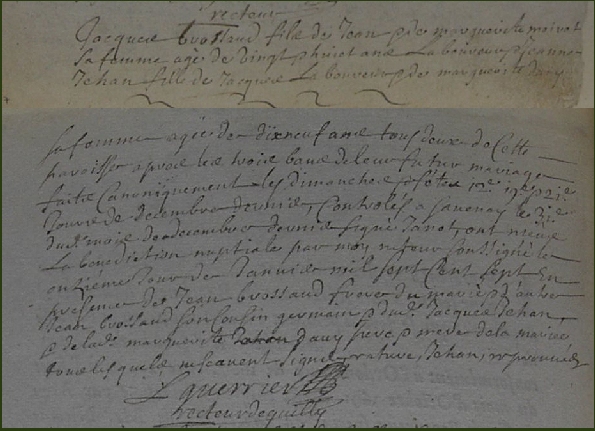 recteur
Jacques brossaud fils de Jean p de marguerite moirot
sa femme agé de vingt p huict ans La boureur p Jeanne
Jehan fille de Jacques La boureur p de marguerite davy
sa femme agée de dixneuf ans tous deux de Cette
paroisse apres les trois bans de leur futur mariage
faits Canoniquement les dimanches p festes
Jours de decembre dernier, Controlés a Savenay le
dud. mois de decembre dernier signé Janot, ont
La benediction nuptiale par moy recteur soussigné le
onzieme Jour de Janvier mil sept Cent sept En
presence de Jean brossaud frere du marié p d'autre
Jean brossaud son Cousin germain p dud. Jacques Jehan,
p de lad. marguerite davy pere p mere de la mariée
tous lesquels ne scavent signer rature, Jehan, approuvée
L guerrier
recteur de quilly